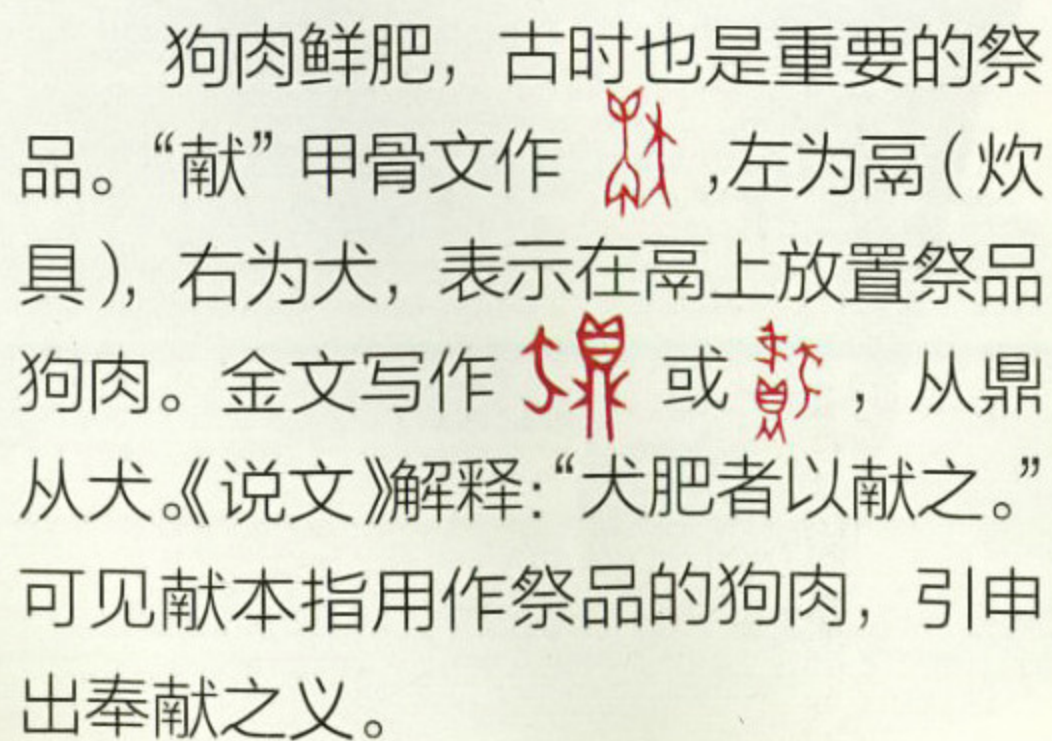 狗肉鲜肥，古时也是重要的祭
品。“献”甲骨文作 ,左为鬲(炊
具)，右为犬，表示在鬲上放置祭品
狗肉。金文写作 或 ，从鼎
从犬。《说文》解释：“犬肥者以献之。”
可见献本指用作祭品的狗肉，引申
出奉献之义。